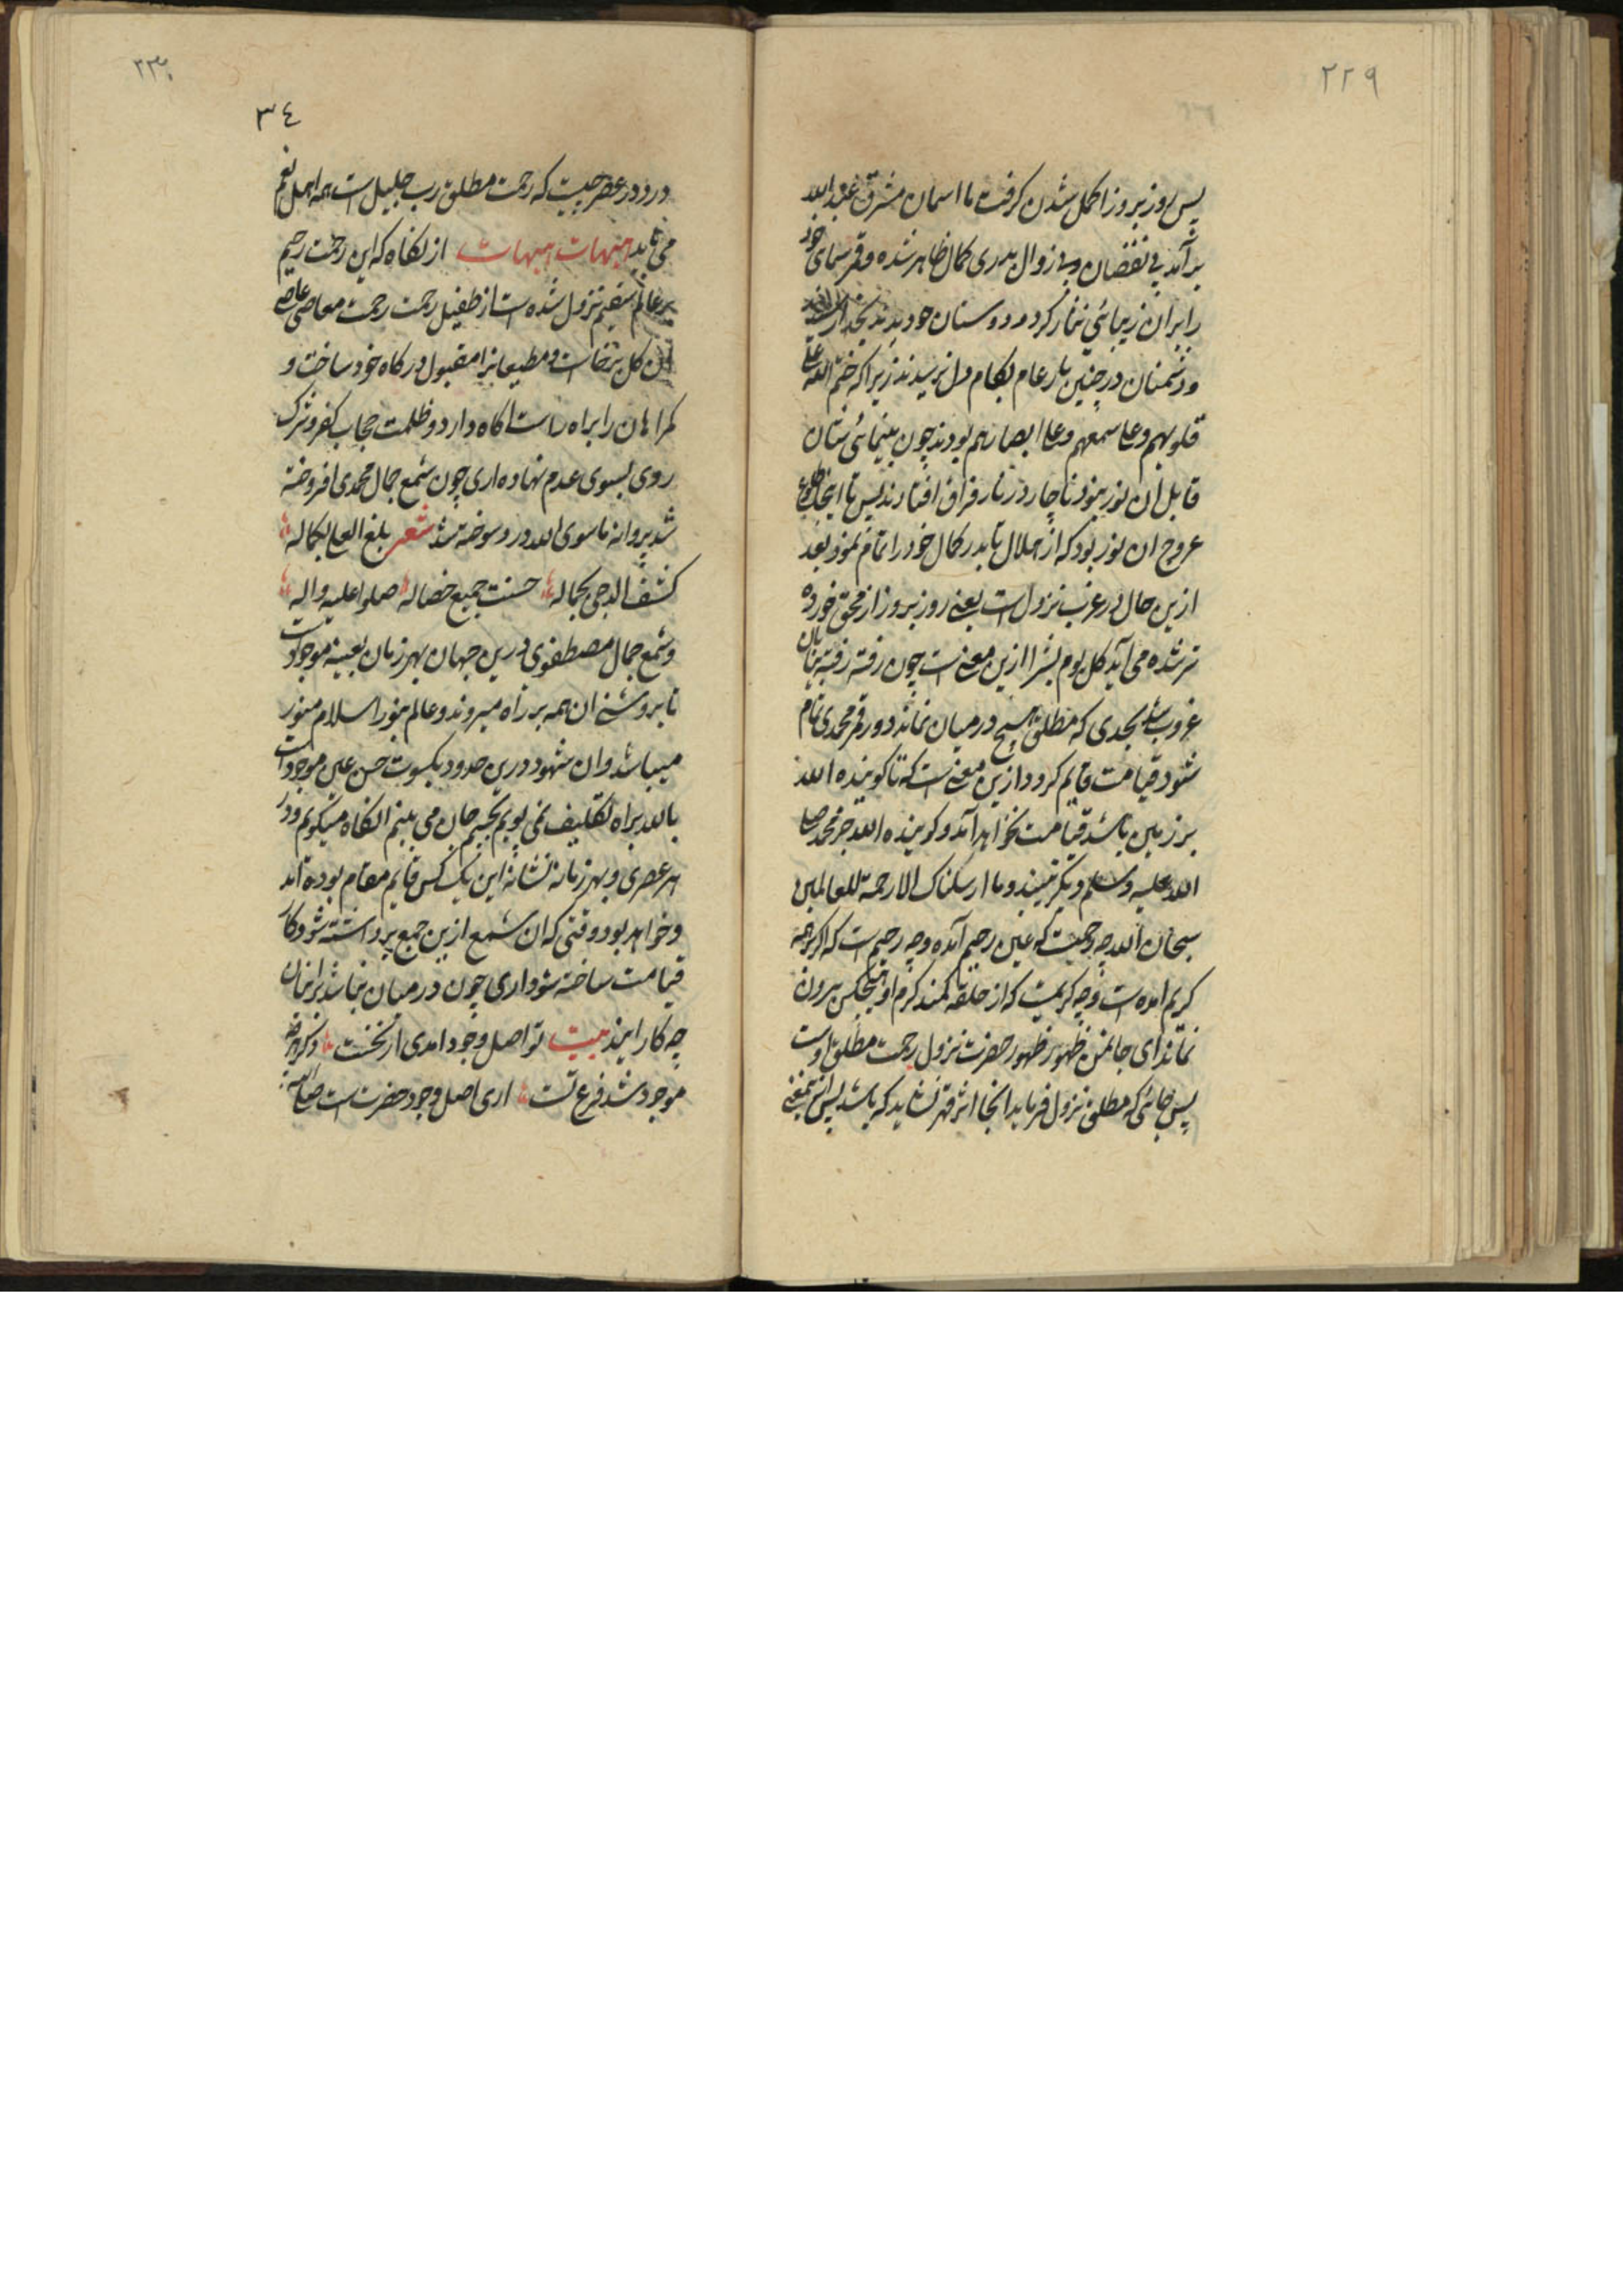 ٢٢٩
پس روز بروز اکمل شدن کرفت تا اسمان مشرق عبد الله
برآمد بی نقصان و بی زوال بدری کمال ظاهر شده و قمر سمای خود
را بران زیبائی نثار کرد و دوستان خود بدیدند بخدا رسیدند
و دشمنان در چنین بار عام بکام دل نرسیدند زیرا که ختم الله علی
قلوبهم و علی سمعهم و علی ابصارهم بودند چون بینائی شان
قابل ان نور نبود ناچار در نار فراق افتادند پس تا اینجا طلوع
عروج ان نور بود که از هلال تا بدر کمال خود را تمام نمود بعد
ازین حال در غرب نزول است یعنی روز بروز از محق خورده
تر شده می آید کل یوم بشرا ازین معنی است چون رفته رفته پنهان
غروب شد بحدی که مطلق هیچ در میان نماند دور قمر محمدی تمام
شود قیامت قایم کردد ازین معنی است که تا کوینده الله
بر زمین باشد قیامت نخواهد آمد و کوینده الله جز محمد صلی
الله علیه وسلم دیکر نیند وما ارسلناک الا رحمة للعالمین
سبحان الله چه رحمیت که عین رحیم آمده و چه رحیم است که اکرچه
کریم امده است و چه کریمیت که از حلقه کمند کرم او هیچکس بیرون
نماند ای جانمن ظهور ظهور حضرت نزول رحمت مطلق اوست
پس جائی که مطلق نزول فرماید انجا اثر قهر نشاید که باشد پس
٢٣٠
٣٤
درود در عصر حبیت که رحمت مطلق رب جلیل است همه اهل نعم
می تابد هیهات هیهات ازلکفاه که این رحمت رحیم
بر عالم سقیم نزول شده است از طفیل رحمت رحمت معاصی عاصی
ان کل برخاست و مطیعانرا مقبول درکاه خود ساخت و
کمراهان را براه راست اکاه دارد و ظلمت حجاب کفر و شرک
روی بسوی عدم نهاده اری چون شمع جمال محمدی افروخته
شد پروانه ماسوی الله درو سوخته شد شعر بلغ العلی بکماله
کشف الدجی بجماله حسنت جمیع خصاله صلوا علیه واله
و شمع جمال مصطفوی درین جهان بهر زمان بعینه موجود است
تا بروشنی ان همه بر راه میروند و عالم بنور اسلام منور
میباشد و ان شهود درین حدود بکسوت حسن عین موجود است
بالله براه تکلیف نمی پویم بچشم جان می بینم انکاه میکویم و در
هر عصری و بهر زمانه نشانه این یک کس قایم مقام بوده آمد
و خواهد بود وقتی که ان شمع ازین جمع برداشته شود کار
قیامت ساخته شود اری چون در میان نباشد برایشان
چه کار ایند بیت تو اصل وجود امدی از نخست دکر هرچه
موجود شد فرع تست اری اصل وجود حضرت است